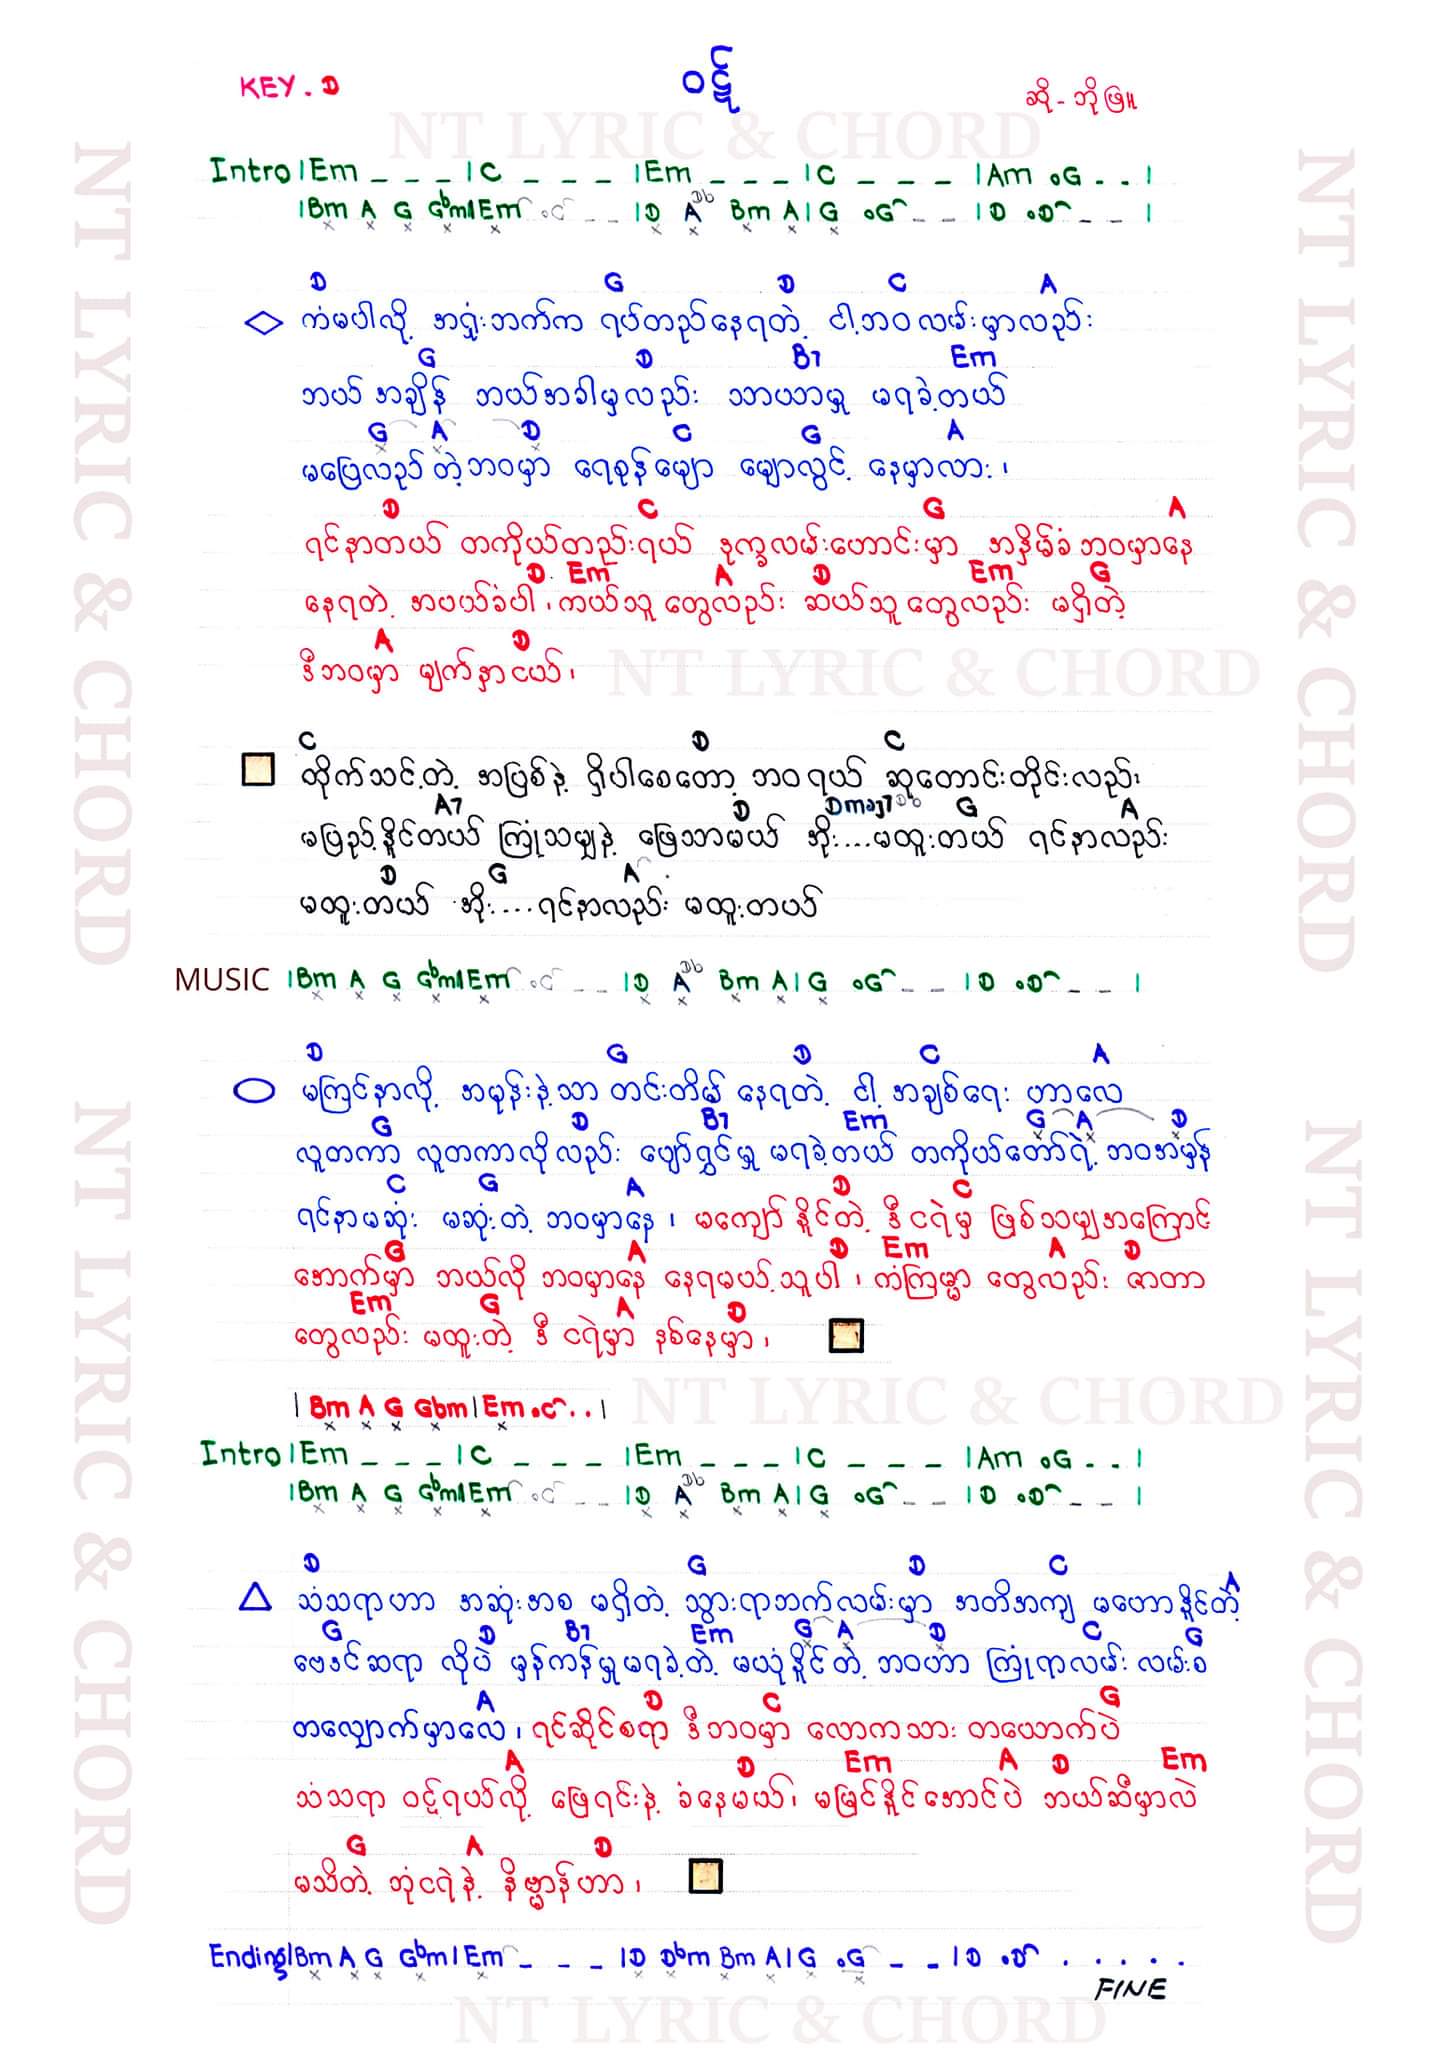 KEY. D
ဝဋ်
ဆို - ဘိုဖြူ
NT LYRIC & CHORD
Intro |Em _ _ _ |C _ _ _ |Em _ _ _ |C _ _ _ |Am oG . . |
|Bm A G Gbm|Em oC _ _ |D A Db Bm A|G oG _ _ |D oD _ _ |
D G D C A
ကံမပါလို့ အရှုံးဘက်က ရပ်တည်နေရတဲ့ ငါ့ဘဝလမ်းမှာလည်း
G D B7 Em
ဘယ်အချိန် ဘယ်အခါမှလည်း သာယာမှု မရခဲ့တယ်
G A D C G A
မပြေလည်တဲ့ဘဝမှာ ရေစုန်မျော မျောလွင့် နေမှာလား၊
D C G A
ရင်နာတယ် တကိုယ်တည်းရယ် ဒုက္ခလမ်းဟောင်းမှာ အနှိမ်ခံ ဘဝမှာနေ
D Em A D Em G
နေရတဲ့ အဖယ်ခံပါ၊ ကယ်သူတွေလည်း ဆယ်သူတွေလည်း မရှိတဲ့
A D
ဒီဘဝမှာ မျက်နှာငယ်၊
NT LYRIC & CHORD
C D C
ထိုက်သင့်တဲ့ အပြစ်နဲ့ ရှိပါစေတော့ ဘဝရယ် ဆုတောင်းတိုင်းလည်း
A7 D Dmaj7 Db G A
မပြည့်နိုင်တယ် ကြုံသမျှနဲ့ ဖြေသာမယ် အိုး...မထူးတယ် ရင်နာလည်း
D G A
မထူးတယ် အိုး....ရင်နာလည်း မထူးတယ်
MUSIC |Bm A G Gbm|Em oC _ _ |D A Db Bm A|G oG _ _ |D oD _ _ |
D G D C A
မကြင်နာလို့ အမုန်းနဲ့သာ တင်းတိမ် နေရတဲ့ ငါ့ အချစ်ရေး ဟာလေ
G D B7 Em G A D
လူတကာ လူတကာလိုလည်း ပျော်ရွှင်မှု မရခဲ့တယ် တကိုယ်တော်ရဲ့ ဘဝအမှန်
C G A D C
ရင်နာမဆုံး မဆုံးတဲ့ ဘဝမှာနေ၊ မကျော်နိုင်တဲ့ ဒီငရဲမှ ဖြစ်သမျှအကြောင်း
G A D Em A D
အောက်မှာ ဘယ်လိုဘဝမှာနေ နေရမယ့်သူပါ၊ ကံကြမ္မာ တွေလည်း ဇာတာ
Em G A D
တွေလည်း မထူးတဲ့ ဒီ ငရဲမှာ နစ်နေမှာ၊
|Bm A G Gbm|Em oC . . |
NT LYRIC & CHORD
Intro |Em _ _ _ |C _ _ _ |Em _ _ _ |C _ _ _ |Am oG . . |
|Bm A G Gbm|Em oC _ _ |D A Db Bm A|G oG _ _ |D oD _ _ |
D G D C A
သံသရာဟာ အဆုံးအစ မရှိတဲ့ သွားရာဘက်လမ်းမှာ အတိအကျ မဟောနိုင်တဲ့
G D B7 Em G A D C G
ဗေဒင်ဆရာ လိုပဲ မှန်ကန်မှုမရခဲ့တဲ့ မယုံနိုင်တဲ့ ဘဝဟာ ကြုံရာလမ်း လမ်းစ
A D C G
တလျှောက်မှာလေ၊ ရင်ဆိုင်စရာ ဒီဘဝမှာ လောကသား တယောက်ပဲ
A D Em A D Em
သံသရာ ဝဋ်ရယ်လို့ ဖြေရင်းနဲ့ ခံနေမယ်၊ မမြင်နိုင်အောင်ပဲ ဘယ်ဆီမှာလဲ
G A D
မသိတဲ့ ဘုံငရဲနဲ့ နိဗ္ဗာန်ဟာ၊
Ending|Bm A G Gbm|Em _ _ _ |D Dbm Bm A|G oG _ _ |D oD . . . . .
FINE
NT LYRIC & CHORD
NT LYRIC & CHORD
NT LYRIC & CHORD
NT LYRIC & CHORD
NT LYRIC & CHORD